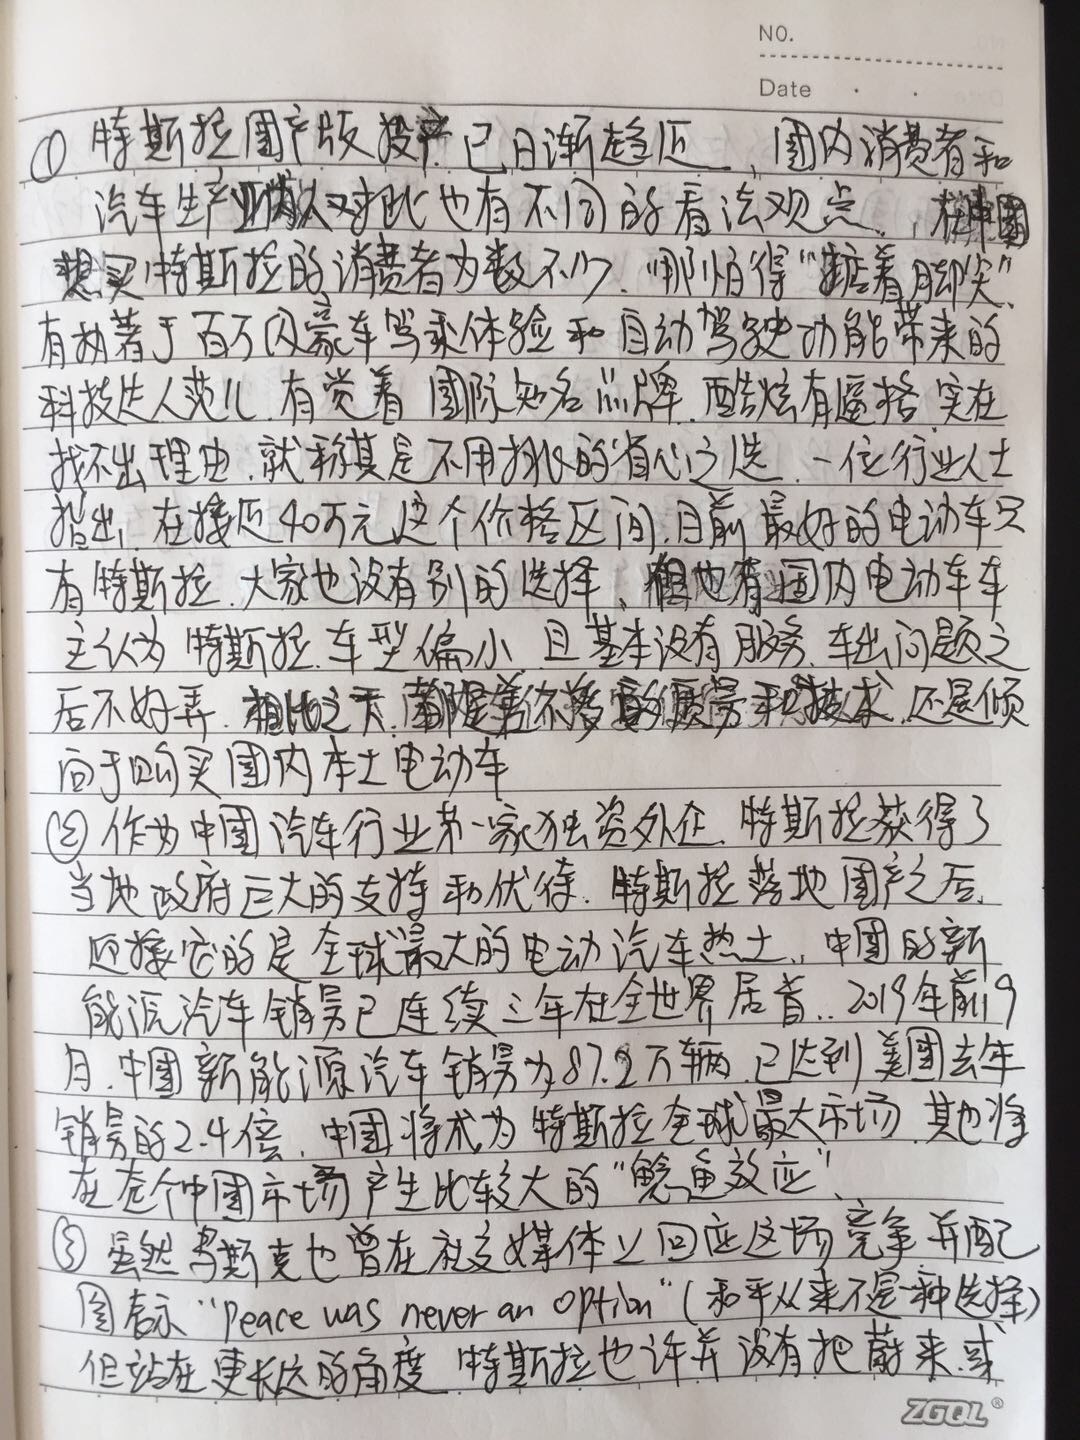 NO.
Date
① 特斯拉国产版投产已日渐趋近，国内消费者和
汽车生产 对此也有不同的看法观点， 在中国
想买特斯拉的消费者为数不少，哪怕得“掂着脚尖”，
有执著于百万内豪车驾乘体验和自动驾驶功能带来的
科技达人范儿，有觉着国际知名品牌，酷炫有逼格，实在
找不出理由，就称其是不用挑的省心之选，一位行业人士
指出，在接近40万元这个价格区间，目前最好的电动车只
有特斯拉，大家也没有别的选择，但也有国内电动车车
主认为特斯拉车型偏小，且基本没有服务，车出问题之
后不好弄，相比之下， 还是倾
向于购买国内本土电动车
② 作为中国汽车行业第一家独资外企，特斯拉获得了
当地政府巨大的支持和优待，特斯拉落地国产之后，
迎接它的是全球最大的电动汽车热土，中国的新
能源汽车销量已连续三年在全世界居首，2019年前9
月，中国新能源汽车销量为87.2万辆，已达到美国去年
销量的2.4倍，中国将成为特斯拉全球最大市场，其也将
在整个中国市场产生比较大的“鲶鱼效应”，
③ 虽然马斯克也曾在社交媒体上回应这场竞争并配
图表示“peace was never an option”(和平从来不是一种选择)
但站在更长远的角度，特斯拉也许并没有把蔚来或
ZGQL®